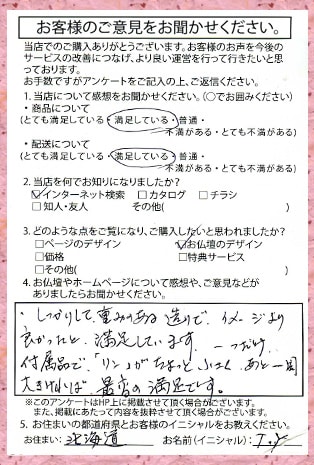 お客様のご意見をお聞かせください。
当店でのご購入ありがとうございます。お客様のお声を今後の
サービスの改善につなげ、より良い運営を行って行きたいと思
っております。
お手数ですがアンケートをご記入の上、ご返信ください。
1. 当店について感想をお聞かせください。(○でお囲みください)
・商品について
(とても満足している・満足している・普通・
不満がある・とても不満がある)
・配送について
(とても満足している・満足している・普通・
不満がある・とても不満がある)
2. 当店を何でお知りになりましたか?
☑インターネット検索 □カタログ □チラシ
□知人・友人 その他( )
3. どのような点をご覧になり、ご購入したいと思われましたか?
□ページのデザイン ☑お仏壇のデザイン
□価格 □特典サービス
□その他( )
4. お仏壇やホームページについて感想や、ご意見などが
ありましたらお聞かせください。
・しっかりして、重みのある造りで、イメージより
良かったと、満足しています。一つだけ、
付属品で、「リン」がちょっと小さく、あと一回
大きければ最高の満足です。
※このアンケートはHP上に掲載させて頂く場合がございます。
また、掲載にあたって内容を抜粋させて頂く場合がございます。
5. お住まいの都道府県とお客様のイニシャルをお教えください。
お住まい: 北海道 お名前(イニシャル) T.Y